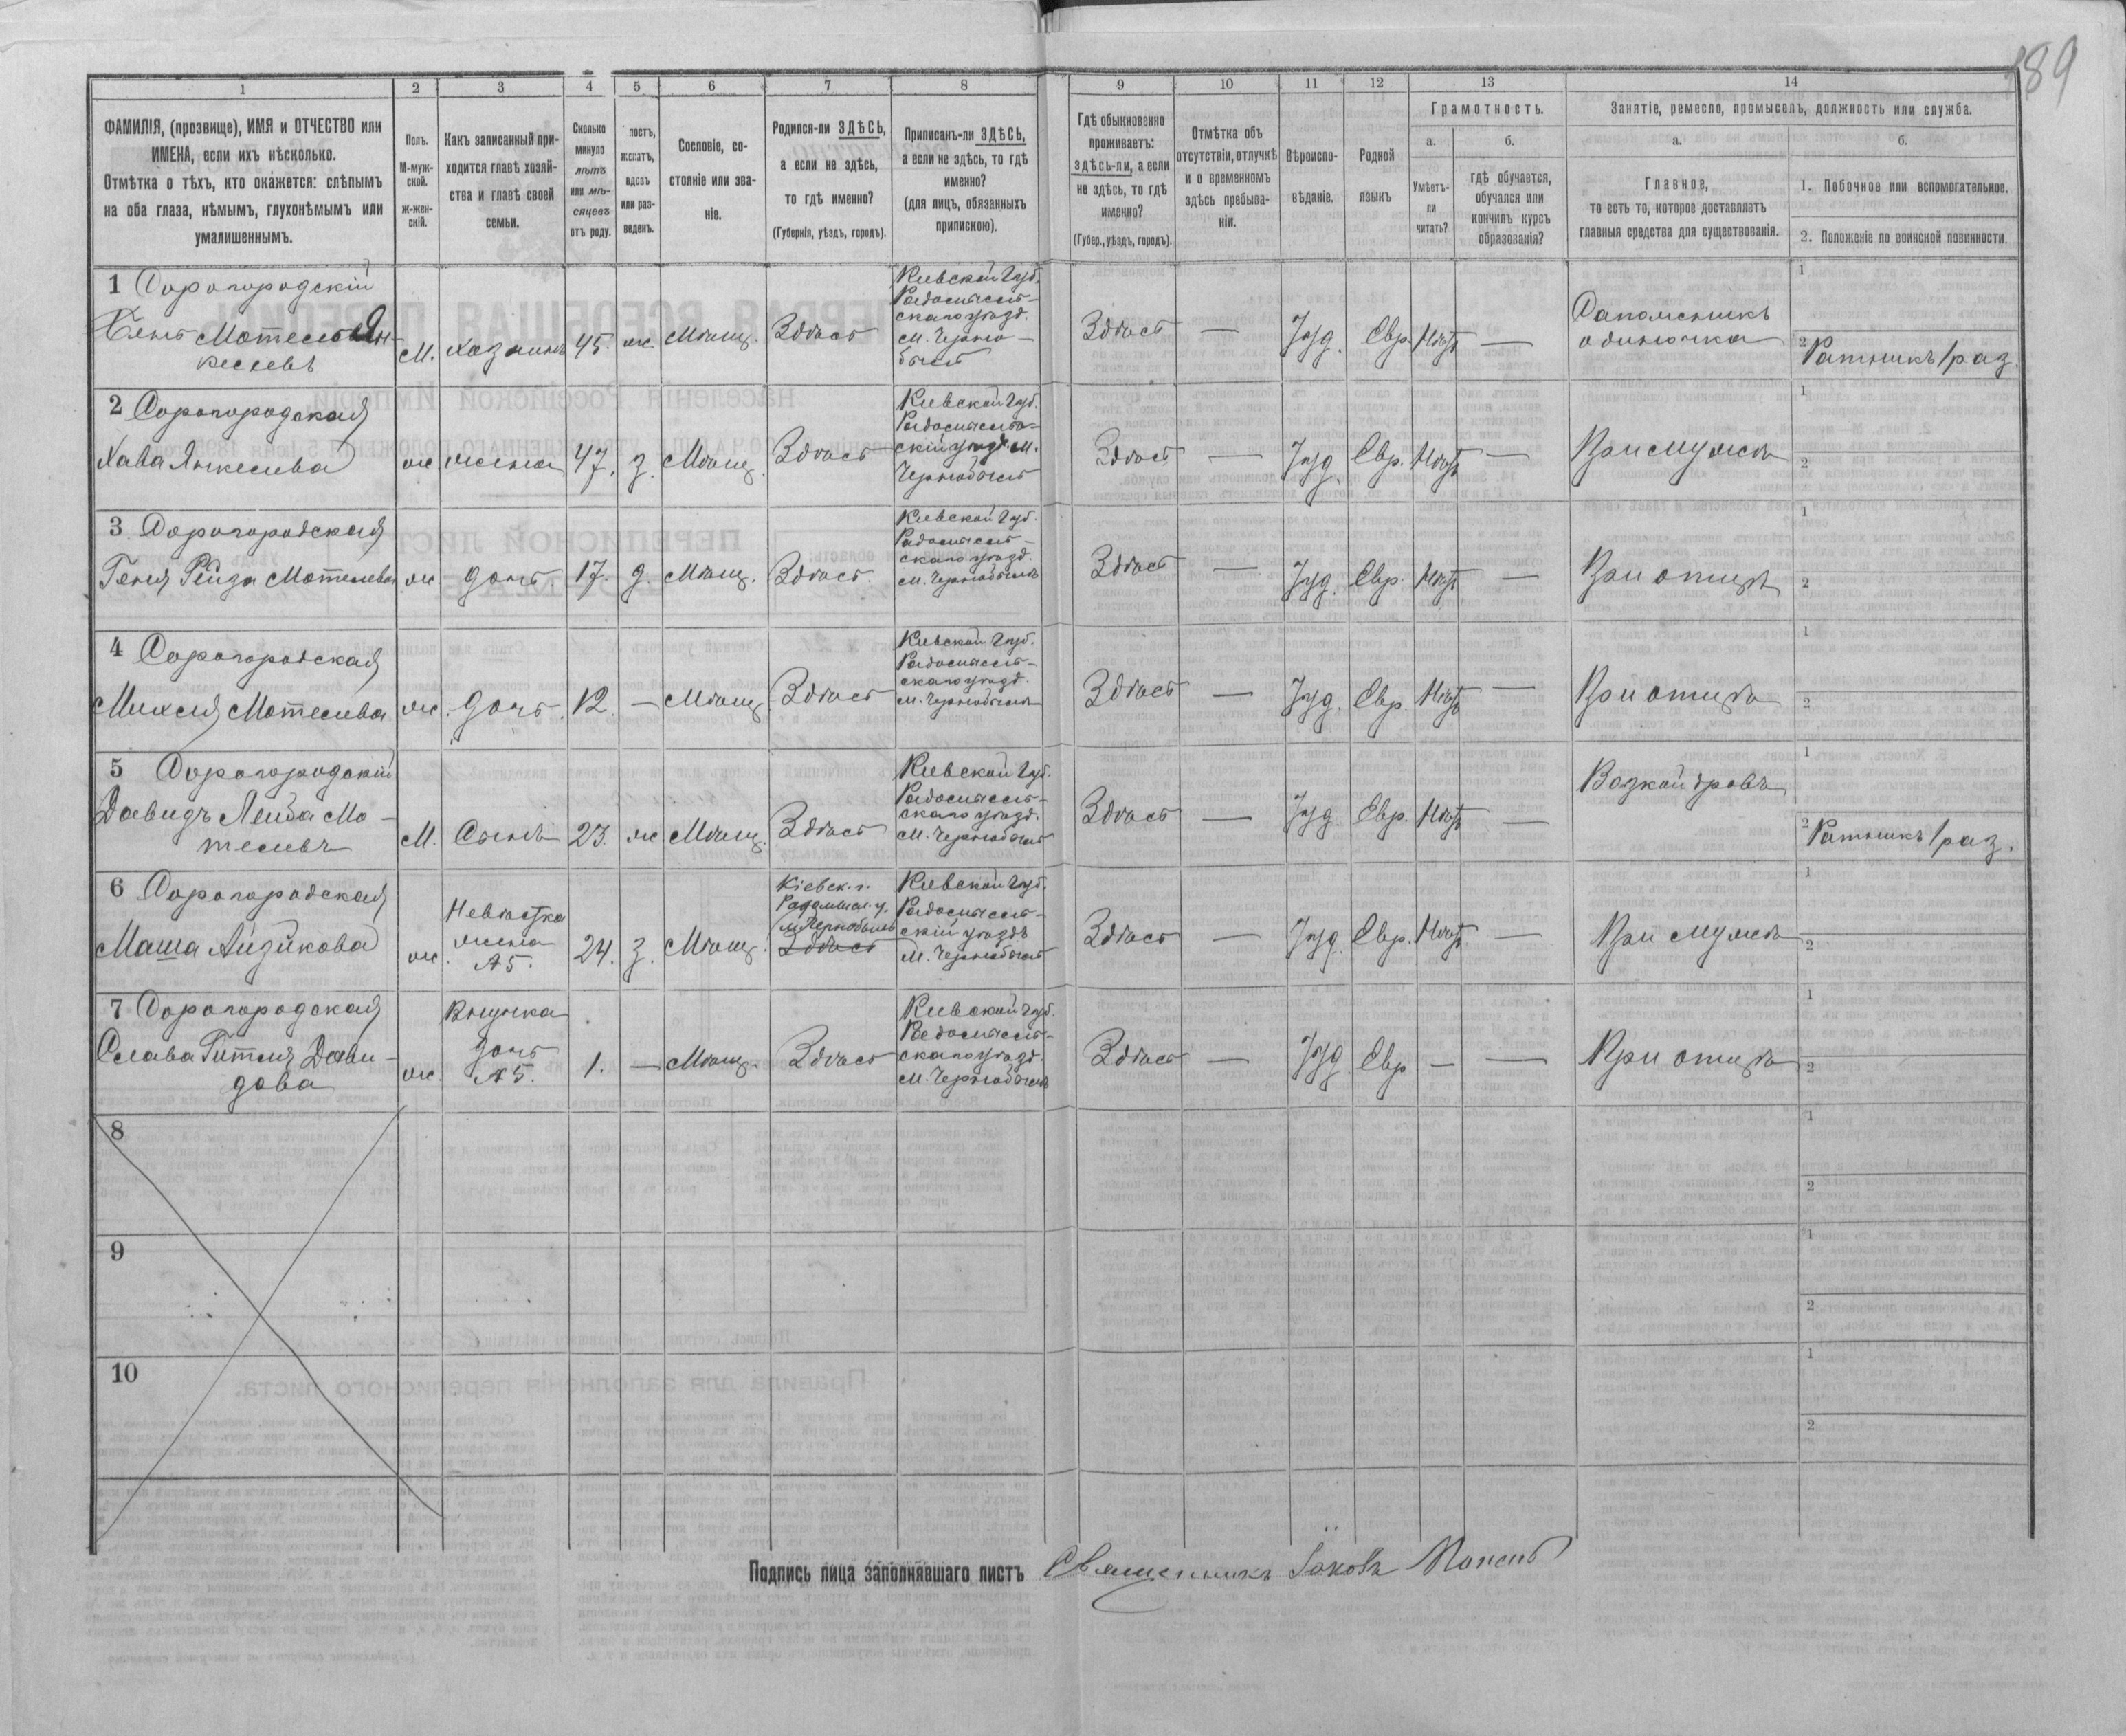 189
1
2
3
4
5
6
7
8
9
10
11
12
13
14
ФАМИЛІЯ, (прозвище), ИМЯ и ОТЧЕСТВО или
ИМЕНА, если ихъ нѣсколько.
Отмѣтка о тѣхъ, кто окажется: слѣпымъ
на оба глаза, нѣмымъ, глухонѣмымъ или
умалишеннымъ.
Полъ.
М-муж-
ской.
ж-жен-
скій.
Какъ записанный при-
ходится главѣ хозяй-
ства и главѣ своей
семьи.
Сколько
минуло
лѣтъ
или мѣ-
сяцевъ
отъ роду.
лостъ,
женатъ,
вдовъ
или раз-
веденъ.
Сословіе, со-
стояніе или зва-
ніе.
Родился-ли ЗДѢСЬ,
а если не здѣсь,
то гдѣ именно?
(Губернія, уѣздъ, городъ).
Приписанъ-ли ЗДѢСЬ,
а если не здѣсь, то гдѣ
именно?
(для лицъ, обязанныхъ
припискою).
Гдѣ обыкновенно
проживаетъ:
здѣсь-ли, а если
не здѣсь, то гдѣ
именно?
(Губер., уѣздъ, городъ).
Отмѣтка объ
отсутствіи, отлучкѣ
и о временномъ
здѣсь пребыва-
ніи.
Вѣроиспо-
вѣданіе.
Родной
языкъ
Грамотность.
а.
Умѣетъ-
ли
читать?
б.
гдѣ обучается,
обучался или
кончилъ курсъ
образованія?
Занятіе, ремесло, промыселъ, должность или служба.
а.
Главное,
то есть то, которое доставляетъ
главныя средства для существованія.
б.
1. Побочное или вспомогательное.
2. Положеніе по воинской повинности.
1 Дорогородскій
Бень Мотель Ян-
келевъ
М.
хозяинъ
45.
ж.
Мѣщ.
Здѣсь
Кіевской губ.
Радомысль-
скаго уѣзд.
м. Черно-
быль
Здѣсь
—
Іуд.
Евр.
Нѣтъ
—
Сапожникъ
одиночка
1
2 Ратникъ 1 раз.
2 Дорогородская
Хава Янкелева
ж
жена
47.
з.
Мѣщ.
Здѣсь
Кіевской губ.
Радомысль-
скій уѣзд. м.
Чернобыль
Здѣсь
—
Іуд.
Евр.
Нѣтъ
—
При мужѣ
1
2
3 Дорогородская
Геня Рейза Мотелева
ж.
дочь
17.
д.
Мѣщ.
Здѣсь
Кіевской губ.
Радомысль-
скаго уѣзд.
м. Чернобыль
Здѣсь
—
Іуд.
Евр.
Нѣтъ
—
При отцѣ
1
2
4 Дорогородская
Михля Мотелева
ж.
дочь
12.
—
Мѣщ.
Здѣсь
Кіевской губ.
Радомысль-
скаго уѣзд.
м. Чернобыль
Здѣсь
—
Іуд.
Евр.
Нѣтъ
—
При отцѣ
1
2
5 Дорогородскій
Давидъ Лейба Мо-
телевъ
М.
Сынъ
23.
ж
Мѣщ.
Здѣсь
Кіевской губ.
Радомысль-
скаго уѣзд.
м. Чернобыль
Здѣсь
—
Іуд.
Евр.
Нѣтъ
—
Возкой дровъ
1
2 Ратникъ 1 раз.
6 Дорогородская
Маша Айзикова
ж.
Невѣстка
жена
№5.
24.
з.
Мѣщ.
Кіевск. г.
Радомысл. у.
м. Чернобыль
Здѣсь
Кіевской губ.
Радомысль-
скій уѣздъ
м. Чернобыль
Здѣсь
—
Іуд.
Евр.
Нѣтъ
—
При мужѣ
1
2
7 Дорогородская
Слава Гитля Дави-
дова
ж.
Внучка
дочь
№5.
1.
—
Мѣщ.
Здѣсь
Кіевской губ.
Радомысль-
скаго уѣзд.
м. Чернобыль
Здѣсь
—
Іуд.
Евр
—
—
При отцѣ
1
2
8
1
2
9
1
2
10
1
2
Подпись лица заполнявшаго листъ Священникъ Іаковъ